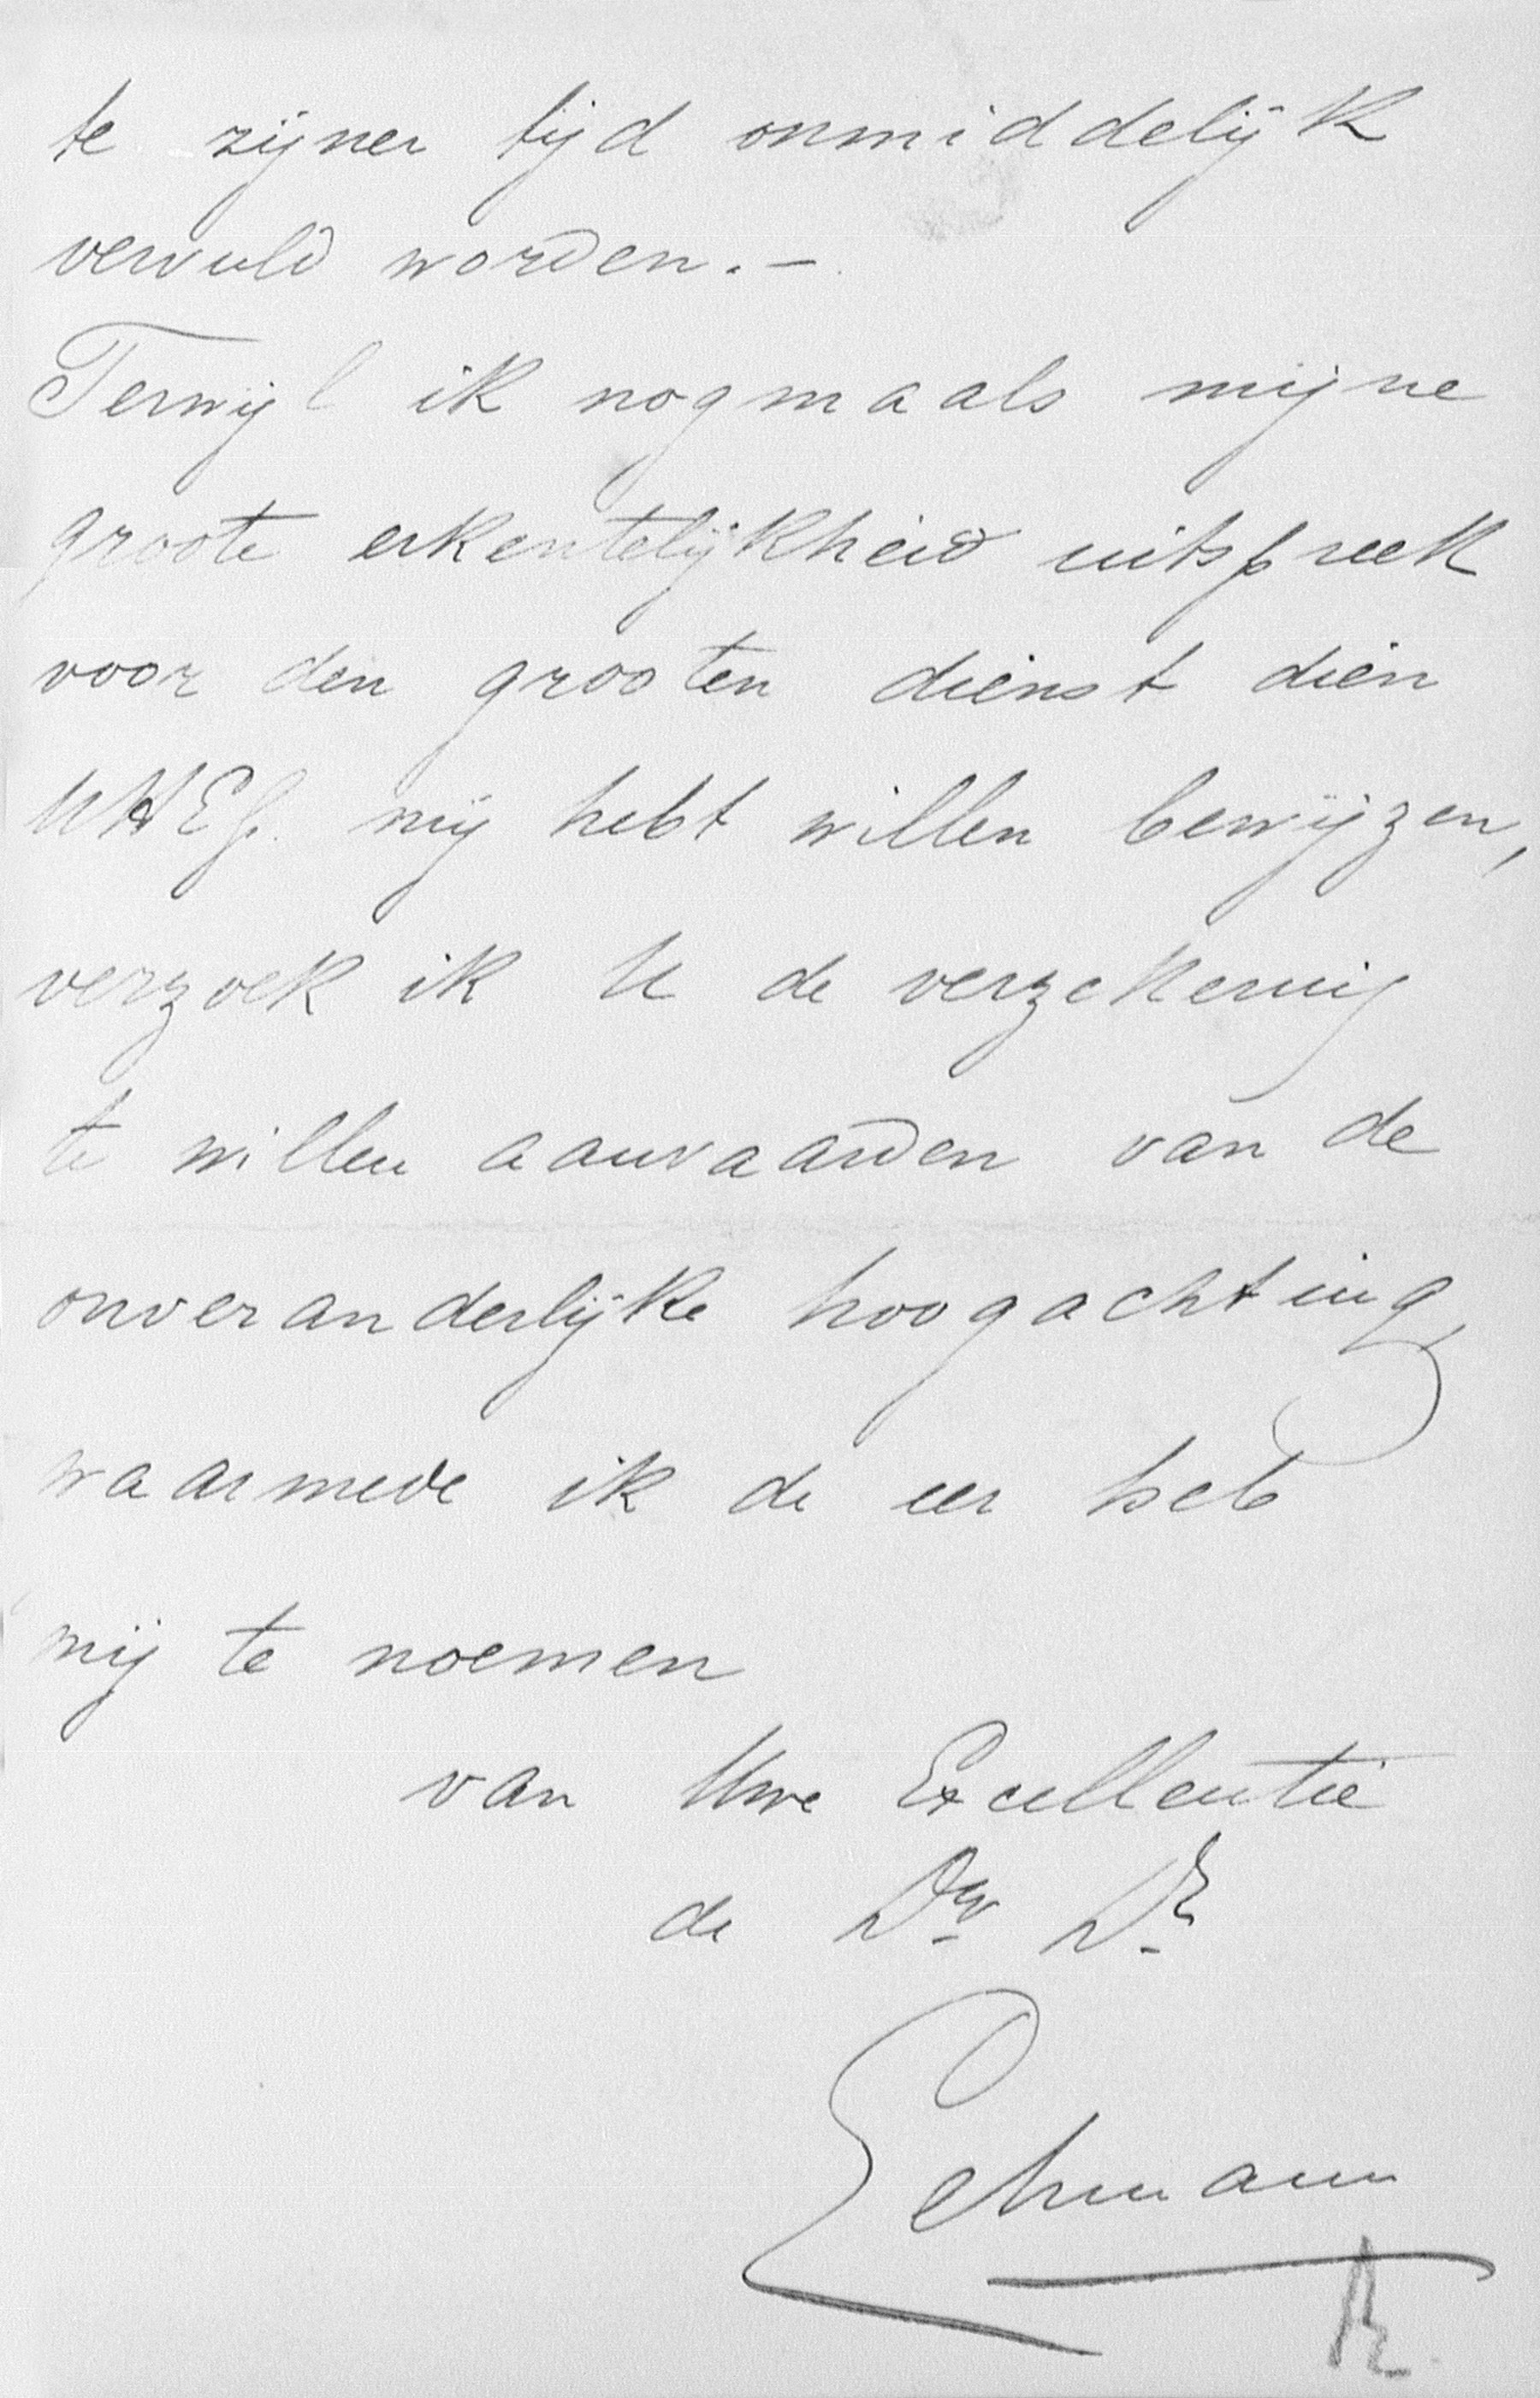 te zijner tijd onmiddelijk
vervuld worden. —
Terwijl ik nogmaals mijne
groote erkentelijkheid uitspreek
voor den grooten dienst dien
UHEG. mij hebt willen bewijzen,
verzoek ik U de verzekering
te willen aanvaarden van de
onveranderlijke hoogachting,
waarmede ik de eer heb
mij te noemen
van Uwe Excellentie
de Dw Dr